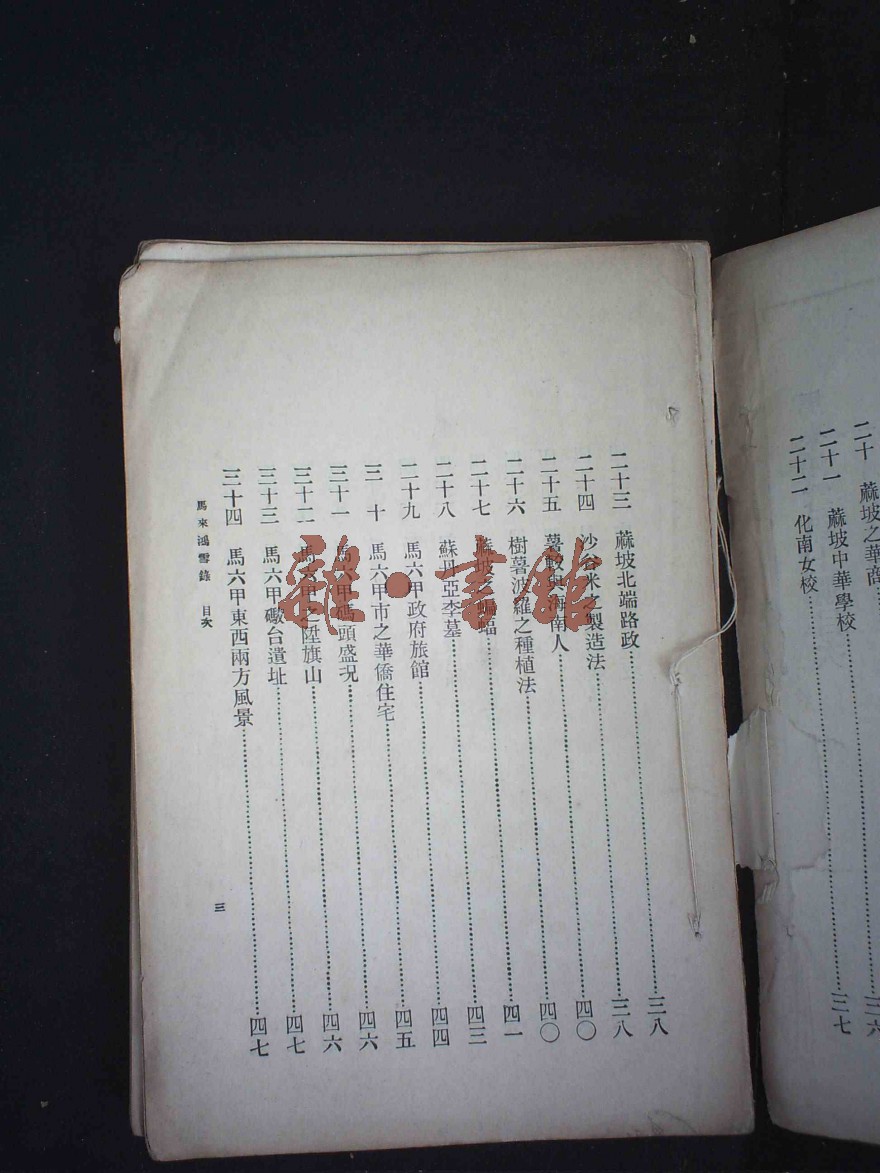 二十 蔴坡之華商
二十一 蔴坡中華學校……三六
二十二 化南女校……三七
二十三 蔴坡北端路政……三八
二十四 沙谷米之製造法……三八
二十五 薯 與海南人……四〇
二十六 樹薯波羅之種植法……四〇
二十七 蔴坡之蝙蝠……四一
二十八 蘇丹亞李墓……四三
二十九 馬六甲政府旅館……四四
三十 馬六甲市之華僑住宅……四五
三十一 馬六甲碼頭盛況……四六
三十二 馬六甲之陞旗山……四六
三十三 馬六甲礮台遺址……四七
三十四 馬六甲東西兩方風景……四七
馬來鴻雪錄 目次 三
雜·書館